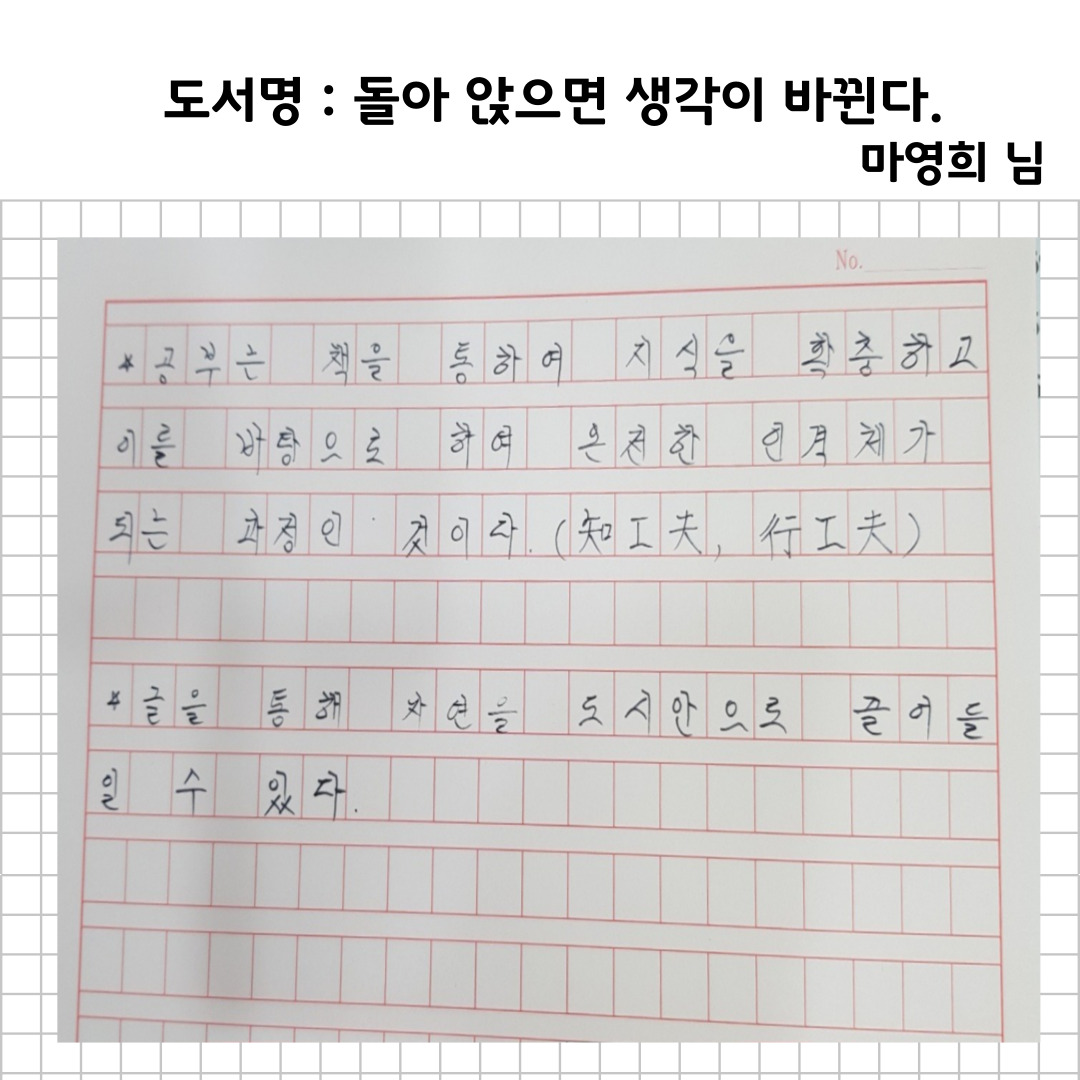 도서명 : 돌아 앉으면 생각이 바뀐다.
마영희 님
No.
*공부는 책을 통하여 지식을 확충하고
이를 바탕으로 하여 온전한 인격체가
되는 과정인 것이다.(知工夫, 行工夫)
*글을 통해 자연을 도시안으로 끌어들
일 수 있다.